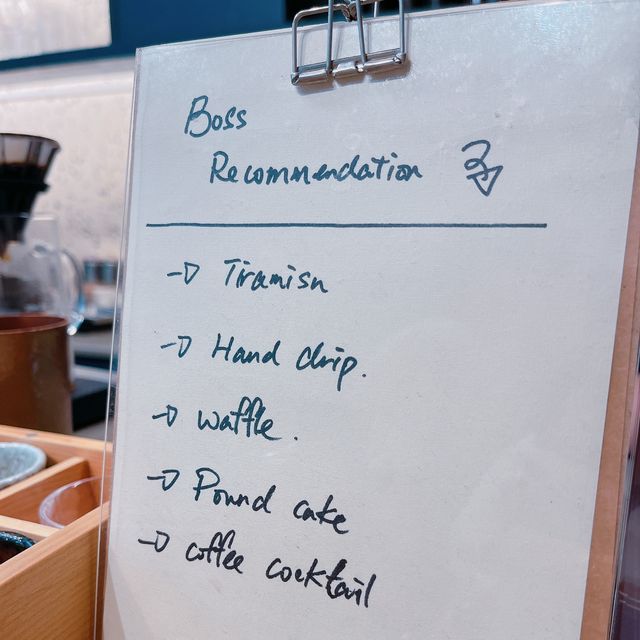 Boss
Recommendation
Tiramisu
Hand drip.
waffle.
Pound cake
coffee cocktail